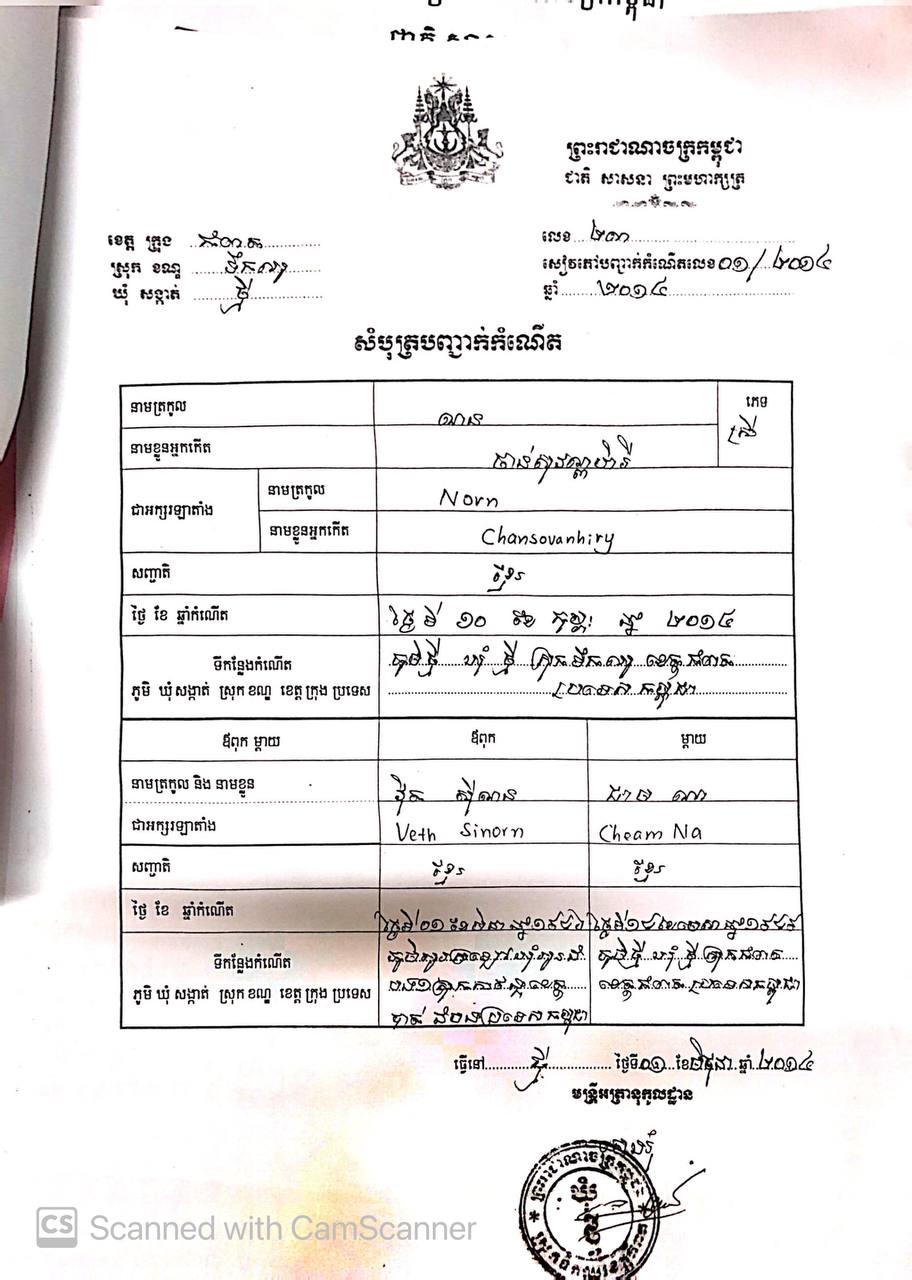 ព្រះរាជាណាចក្រកម្ពុជា
ជាតិ សាសនា ព្រះមហាក្សត្រ
ខេត្ត ក្រុង កំពត
ស្រុក ខណ្ឌ ទឹកឈូ
ឃុំ សង្កាត់ ថ្មី
លេខ ២៣
សៀវភៅបញ្ជាក់កំណើតលេខ ០១/២០១៤
ឆ្នាំ ២០១៤
សំបុត្របញ្ជាក់កំណើត
នាមត្រកូល ណន
ភេទ ស្រី
នាមខ្លួនអ្នកកើត ចាន់សុវណ្ណហ៊ីរី
ជាអក្សរឡាតាំង
នាមត្រកូល Norn
នាមខ្លួនអ្នកកើត Chansovanhiry
សញ្ជាតិ ខ្មែរ
ថ្ងៃ ខែ ឆ្នាំកំណើត ថ្ងៃទី ១០ ខែ កុម្ភៈ ឆ្នាំ ២០១៤
ទីកន្លែងកំណើត ភូមិថ្មី ឃុំ ថ្មី ស្រុកទឹកឈូ ខេត្តកំពត
ភូមិ ឃុំសង្កាត់ ស្រុកខណ្ឌ ខេត្តក្រុង ប្រទេស ប្រទេសកម្ពុជា
ឪពុក ម្តាយ ឪពុក ម្តាយ
នាមត្រកូល និង នាមខ្លួន វ៉ិត ស៊ីណន ជាម ណា
ជាអក្សរឡាតាំង Veth Sinorn Cheam Na
សញ្ជាតិ ខ្មែរ ខ្មែរ
ថ្ងៃ ខែ ឆ្នាំកំណើត
ទីកន្លែងកំណើត ភូមិថ្មី ឃុំ ថ្មី ស្រុកកំពត
ភូមិ ឃុំ សង្កាត់ ស្រុកខណ្ឌ ខេត្តក្រុង ប្រទេស ខេត្តកំពត ប្រទេសកម្ពុជា
ប្រទេសកម្ពុជា
ធ្វើនៅ ថ្មី ថ្ងៃទី ០១ ខែ មិថុនា ឆ្នាំ ២០១៤
មន្ត្រីអត្រានុកូលដ្ឋាន
ព្រះរាជាណាចក្រកម្ពុជា
CS Scanned with CamScanner